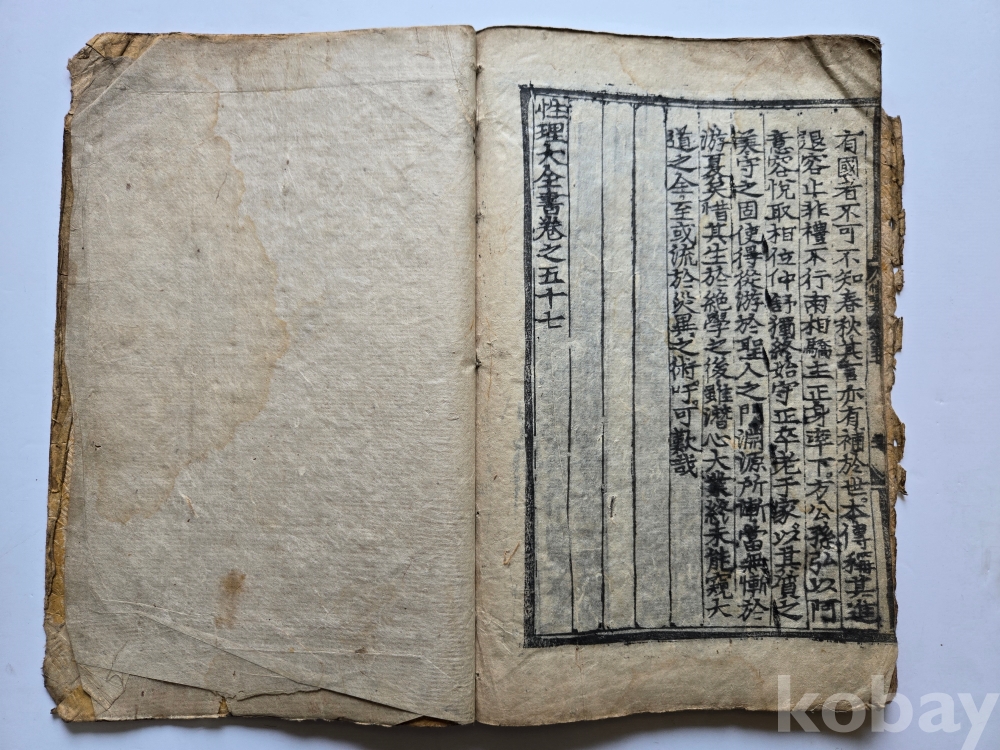 有國者不可不知春秋其言亦有補於世本傳稱其進
退容止非禮不行兩相驕主正身率下方公孫弘以阿
意容悅取相位仲舒獨終始守正卒老于家以其質之
美守之固使得從游於聖人之門淵源所漸當無慚於
游夏矣惜其生於絶學之後雖潛心大業終未能窺大
道之全至或流於災異之術吁可歎哉
性理大全書卷之五十七
kobay